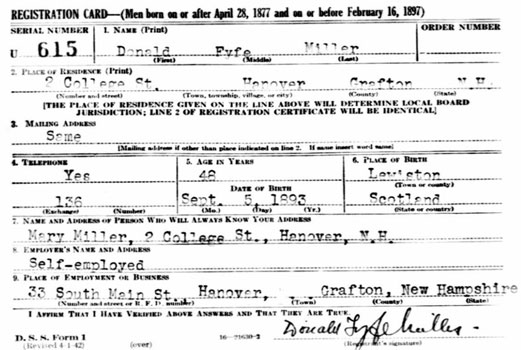 REGISTRATION CARD—(Men born on or after April 28, 1877 and on or before February 16, 1897)
SERIAL NUMBER 1. NAME (Print) ORDER NUMBER
U 615 Donald Fyfe Miller
(First) (Middle) (Last)
2. PLACE OF RESIDENCE (Print)
2 College St. Hanover Grafton N.H.
(Number and street) (Town, township, village, or city) (County) (State)
[THE PLACE OF RESIDENCE GIVEN ON THE LINE ABOVE WILL DETERMINE LOCAL BOARD
JURISDICTION; LINE 2 OF REGISTRATION CERTIFICATE WILL BE IDENTICAL]
3. MAILING ADDRESS
Same
[Mailing address if other than place indicated on line 2. If same insert word same]
4. TELEPHONE 5. AGE IN YEARS 6. PLACE OF BIRTH
Yes 48 Lewiston
DATE OF BIRTH (Town or county)
136 Sept. 5, 1893 Scotland
(Exchange) (Number) (Mo.) (Day) (Yr.) (State or country)
7. NAME AND ADDRESS OF PERSON WHO WILL ALWAYS KNOW YOUR ADDRESS
Mary Miller, 2 College St., Hanover, N.H.
8. EMPLOYER'S NAME AND ADDRESS
Self-employed
9. PLACE OF EMPLOYMENT OR BUSINESS
33 South Main St. Hanover, Grafton, New Hampshire
(Number and street or R. F. D. number) (Town) (County) (State)
I AFFIRM THAT I HAVE VERIFIED ABOVE ANSWERS AND THAT THEY ARE TRUE.
D. S. S. Form 1 Donald Fyfe Miller
(Revised 4-1-42) (over) 16—21630-2 (Registrant's signature)